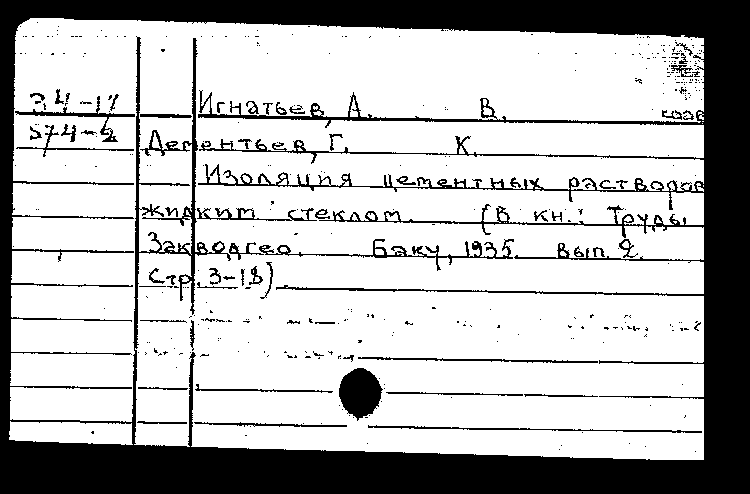 34-17 Игнатьев, А. В.
574-2 Дементьев, Г. К.
Изоляция цементных растворов
жидким стеклом. (В кн.: Труды
Закводгео. Баку, 1935. вып. 2.
Стр. 3-18).